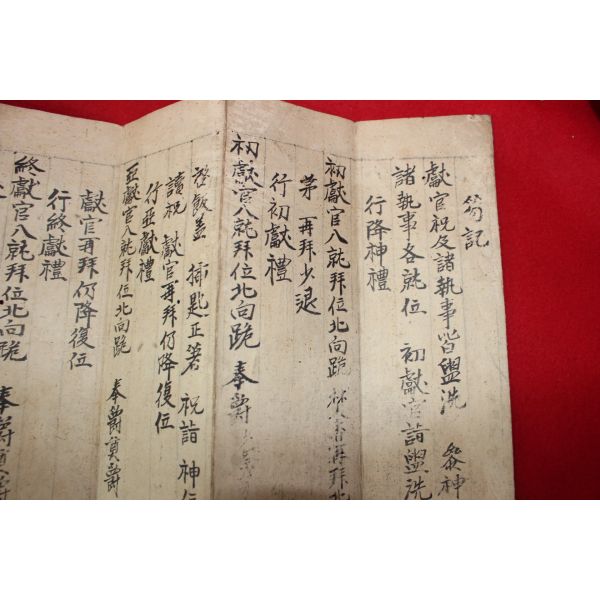 笏記
獻官祝及諸執事皆盥洗 參神
諸執事各就位 初獻官詣盥洗
行降神禮
初獻官入就拜位北向跪 焚香再拜
茅 再拜少退
行初獻禮
初獻官入就拜位北向跪 奉爵
啓飯盖 揷匙正著 祝詣 神位
讀祝 獻官再拜仍降復位
行亞獻禮
亞獻官入就拜位北向跪 奉爵奠爵
獻官再拜仍降復位
行終獻禮
終獻官入就拜位北向跪 奉爵奠爵